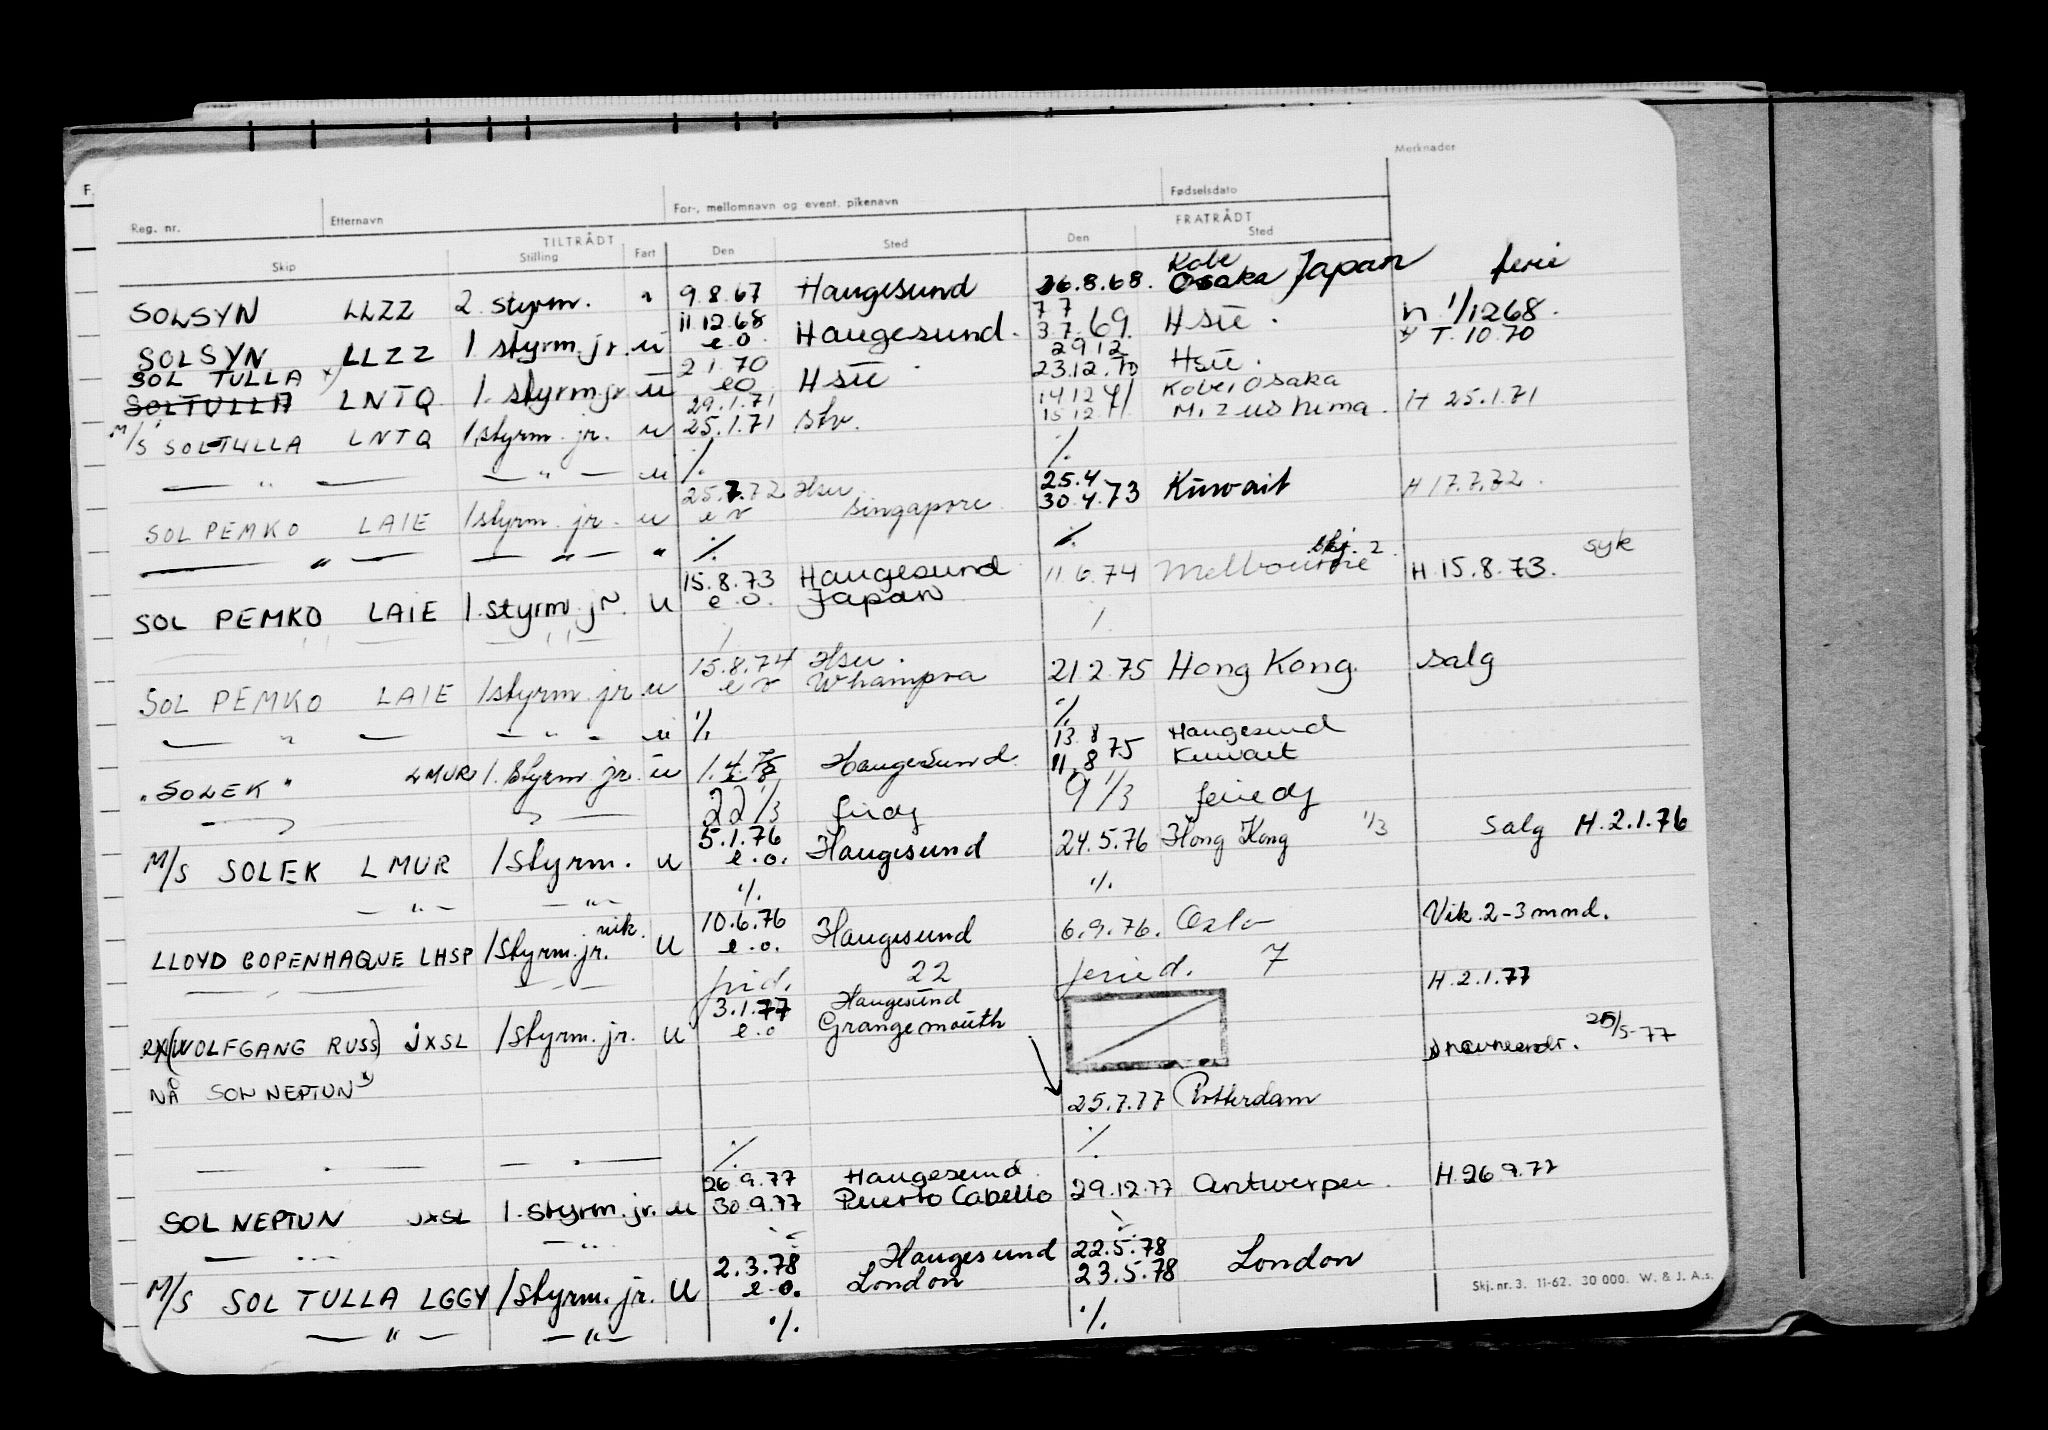 Merknader
Reg. nr. Etternavn For-, mellomnavn og event. pikenavn Fødselsdato
TILTRÅDT FRATRÅDT
Skip Stilling Fart Den Sted Den Sted
Kobe
SOLSYN LLZZ 2. styrm. 9.8.67 Haugesund 26.8.68. Osaka Japan ferie
11.12.68 7 7
SOLSYN LLZZ 1 styrm. jr. u e.o. Haugesund. 3.7.69. Hsu. 1/12 68.
SOL TULLA x) 2 1.70 29 12 T. 10.70
SOLTULLA LNTQ 1. styrm jr u e o Hsu 23.12.70 Hsu.
29.1.71 14 12 71 Kobe, Osaka
M/S SOLTULLA LNTQ 1.styrm. jr. u 25.1.71 15 12 71 Mizushima. H 25.1.71
— " — — " — u ./. ./.
25.7.72 Hsu. 25.4
SOL PEMKO LAIE 1styrm. jr. u Singapore 30.4.73 Kuwait H 17.7.72.
— " — — " — " ./. ./.
15.8.73 Haugesund 11.6.74 Melbourne syk
SOL PEMKO LAIE 1.styrm. jr. u e.o. Japan H.15.8.73.
15.8.74 Hsu.
SOL PEMKO LAIE 1styrm. jr. u Whampoa 21.2.75 Hong Kong. salg
— " — — " — u ./. ./.
13.8 Haugesund
"SOLEK" LMUR 1. styrm jr. u Haugesund. 11.8 75 Kuwait
22 1/3 9 1/3 feriedg
5.1.76
M/S SOLEK LMUR 1styrm. u e.o. Haugesund 24.5.76 Hong Kong 1/3 Salg H.2.1.76
— " — — " — ./. ./.
vik. 10.6.76
LLOYD COPENHAQUE LHSP 1styrm.jr. u e.o. Haugesund 6.9.76. Oslo Vik. 2-3 mnd.
22 feried. 7
3.1.77 Haugesund H.2.1.77
ex(WOLFGANG RUSS) JXSL 1styrm.jr. u e.o Grangemouth 25/5-77
NÅ SOL NEPTUN x)
25.7.77 Rotterdam
— " — — " — ./. ./.
26.9.77 Haugesund
SOL NEPTUN JXSL 1.styrm.jr. u 30.9.77 Puerto Cabello 29.12.77 Antwerpen. H.26.9.77
— " — — " —
2.3.78 Haugesund 22.5.78
M/S SOL TULLA LGGY 1styrm. jr. U e.o. London 23.5.78 London
— " — — " — ./. ./.
Skj. nr. 3. 11-62. 30 000. W. & J. A.s.